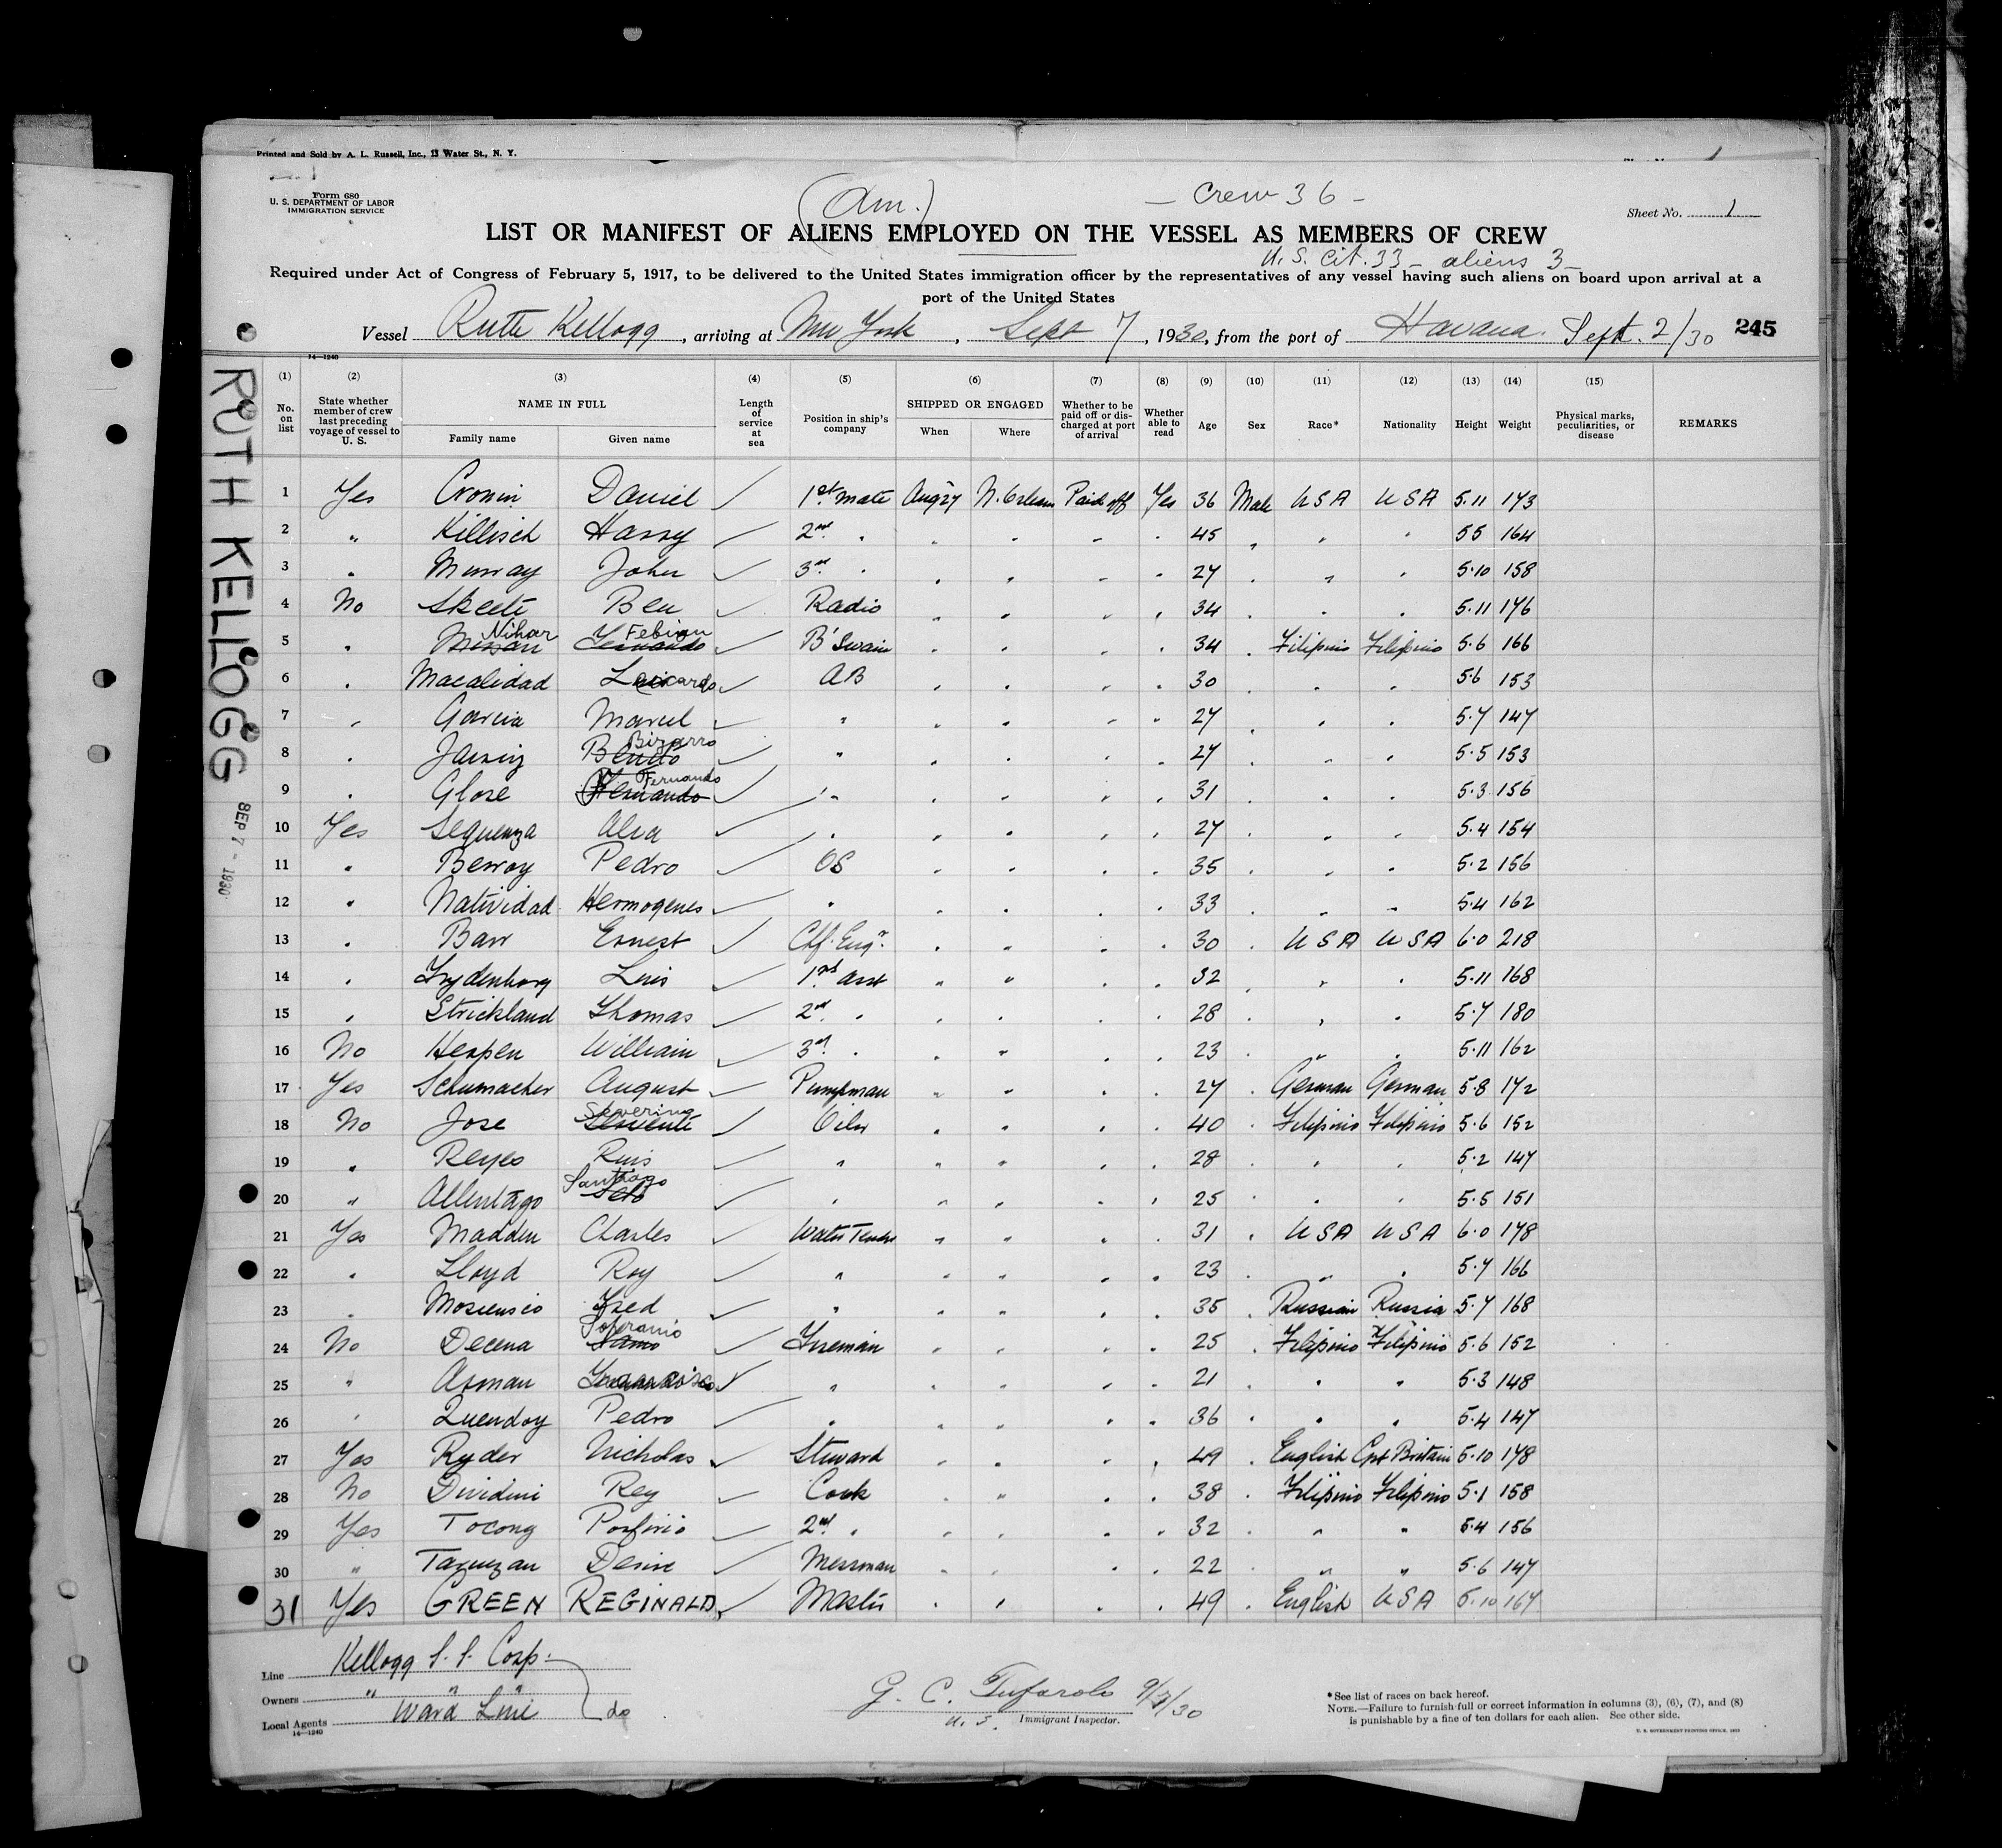 Printed and Sold by A. L. Russell, Inc., 13 Water St., N. Y.
Form 680
U. S. DEPARTMENT OF LABOR
IMMIGRATION SERVICE
(Am.)
- Crew 36 -
Sheet No. 1
LIST OR MANIFEST OF ALIENS EMPLOYED ON THE VESSEL AS MEMBERS OF CREW
U. S. Cit. 33 - aliens 3 -
Required under Act of Congress of February 5, 1917, to be delivered to the United States immigration officer by the representatives of any vessel having such aliens on board upon arrival at a
port of the United States
Vessel Ruth Kellogg, arriving at New York, Sept 7, 1930, from the port of Havana Sept. 2/30 245
14-1240
RUTH KELLOGG SEP 7 - 1930
(1) (2) (3) (4) (5) (6) (7) (8) (9) (10) (11) (12) (13) (14) (15)
No. on list
State whether member of crew last preceding voyage of vessel to U. S.
NAME IN FULL
Family name Given name
Length of service at sea
Position in ship's company
SHIPPED OR ENGAGED
When Where
Whether to be paid off or discharged at port of arrival
Whether able to read
Age Sex Race* Nationality Height Weight
Physical marks, peculiarities, or disease
REMARKS
1 Yes Cronin Daniel ✓ 1st mate Aug 27 N. Orleans Paid off Yes 36 Male USA USA 5.11 173
2 " Killisch Harry ✓ 2nd " " " " " 45 " " " 5 5 164
3 " Murray John ✓ 3rd " " " " " 27 " " " 5.10 158
4 No Skeete Ben ✓ Radio " " " " 34 " " " 5.11 176
5 " Nihar Febian ✓ B'Swain " " " " 34 " Filipino Filipino 5.6 166
6 " Macalidad ✓ AB " " " " 30 " " " 5.6 153
7 " Garcia Marcel ✓ " " " " " 27 " " " 5.7 147
8 " Bizarro ✓ " " " " " 27 " " " 5.5 153
9 " Glose Fernando ✓ " " " " " 31 " " " 5.3 156
10 Yes Sequenza Alva ✓ " " " " " 27 " " " 5.4 154
11 " Berroy Pedro ✓ OS " " " " 35 " " " 5.2 156
12 " Natividad Hermogenes ✓ " " " " " 33 " " " 5.4 162
13 " Barr Ernest ✓ Chf. Engr. " " " " 30 " USA USA 6.0 218
14 " Frydenborg Luis ✓ 1st asst " " " " 32 " " " 5.11 168
15 " Strickland Thomas ✓ 2nd " " " " " 28 " " " 5.7 180
16 No Hespen William ✓ 3rd " " " " " 23 " " " 5.11 162
17 Yes Schumacher August ✓ Pumpman " " " " 27 " German German 5.8 172
18 No Jose Severino ✓ Oiler " " " " 40 " Filipino Filipino 5.6 152
19 " Reyes Ruis ✓ " " " " " 28 " " " 5.2 147
20 " Allentago Santiago ✓ " " " " " 25 " " " 5.5 151
21 Yes Madden Charles ✓ Water Tender " " " " 31 " USA USA 6.0 178
22 " Lloyd Roy ✓ " " " " " 23 " " " 5.7 166
23 " Fred ✓ " " " " " 35 " Russian Russia 5.7 168
24 No Decena Soferanio ✓ Fireman " " " " 25 " Filipino Filipino 5.6 152
25 " Asman ✓ " " " " " 21 " " " 5.3 148
26 " Quendoy Pedro ✓ " " " " " 36 " " " 5.4 147
27 Yes Ryder Nicholas ✓ Steward " " " " 49 " English Grt Britain 5.10 178
28 No Dividini Rey ✓ Cook " " " " 38 " Filipino Filipino 5.1 158
29 Yes Tocong Porfirio ✓ 2nd " " " " " 32 " " " 5.4 156
30 " Taguezan ✓ Messman " " " " 22 " " " 5.6 147
31 Yes GREEN REGINALD ✓ Master " " " " 49 " English USA 5.10 164
Line Kellogg S. S. Corp.
Owners " " "
Local Agents Ward Line do
14-1240
G. C. Tufarolo 9/7/30
U. S. Immigrant Inspector.
*See list of races on back hereof.
NOTE.—Failure to furnish full or correct information in columns (3), (6), (7), and (8)
is punishable by a fine of ten dollars for each alien. See other side.
U. S. GOVERNMENT PRINTING OFFICE